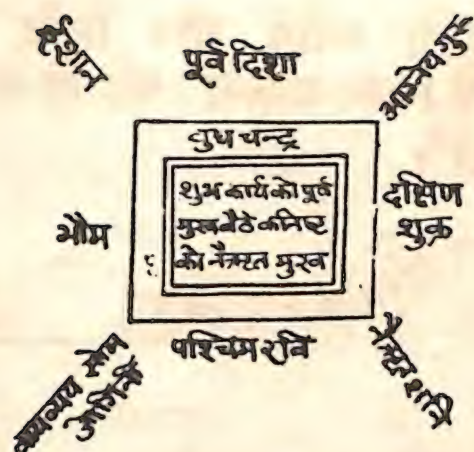 ईशान
पूर्व दिशा
आग्नेय गुरु
वुध चन्द्र
शुभ कार्य को पूर्व
मुख बैठे कनिष्ट
को नैऋत मुख
भौम
दक्षिण
शुक्र
पश्चिम रवि
नैऋत शनि
वायव्यय सोम
जोगिनी